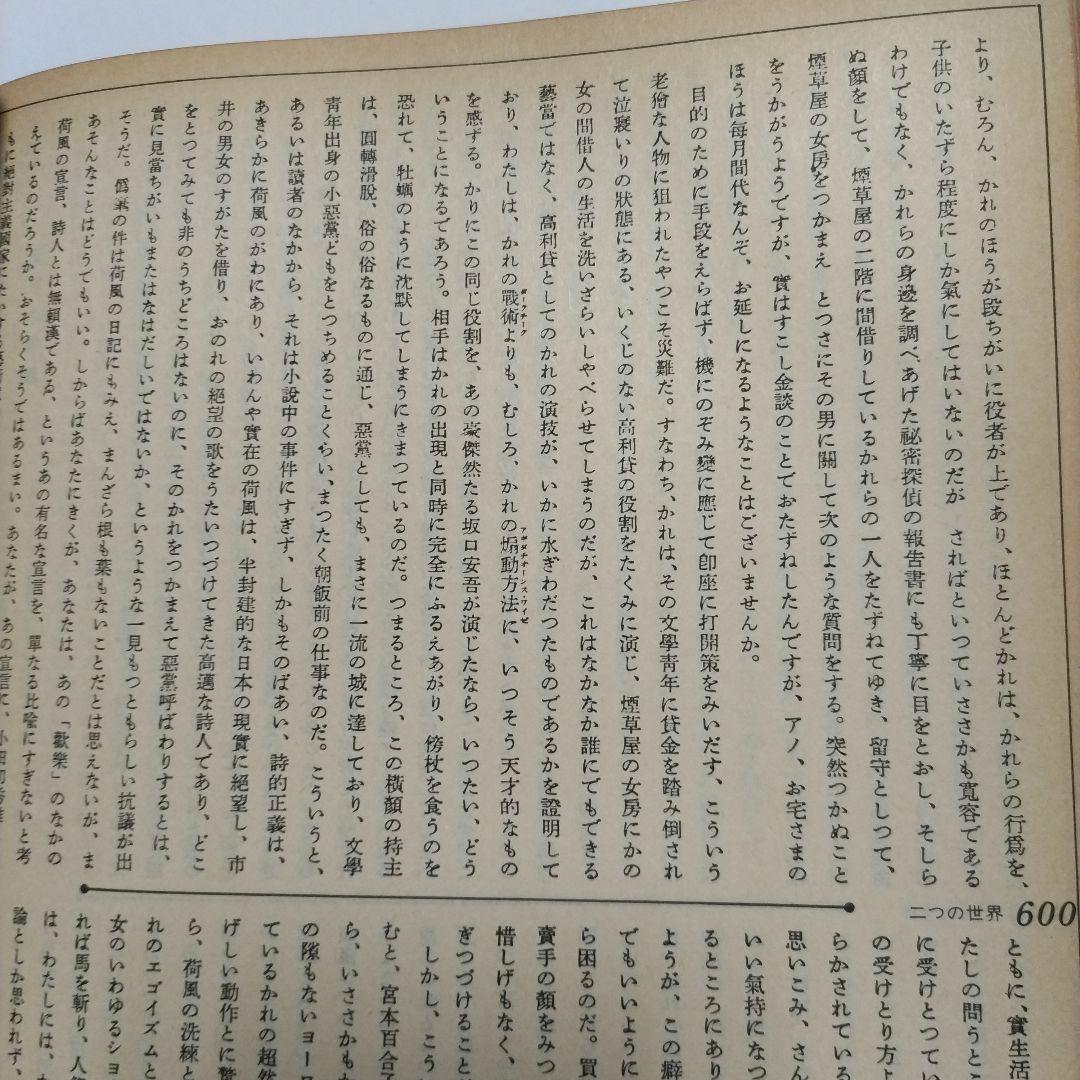 より、むろん、かれのほうが段ちがいに役者が上であり、ほとんどかれは、かれらの行爲を、
子供のいたずら程度にしか氣にしてはいないのだが　さればといつていささかも寬容である
わけでもなく、かれらの身邊を調べあげた祕密探偵の報告書にも丁寧に目をとおし、そしら
ぬ顏をして、煙草屋の二階に間借りしているかれらの一人をたずねてゆき、留守としつて、
煙草屋の女房をつかまえ　とつさにその男に關して次のような質問をする。突然つかぬこと
をうかがうようですが、實はすこし金談のことでおたずねしたんですが、アノ、お宅さまの
ほうは每月間代なんぞ、お延しになるようなことはございませんか。
目的のために手段をえらばず、機にのぞみ變に應じて卽座に打開策をみいだす、こういう
老獪な人物に狙われたやつこそ災難だ。すなわち、かれは、その文學靑年に貸金を踏み倒され
て泣寢いりの狀態にある、いくじのない高利貸の役割をたくみに演じ、煙草屋の女房にかの
女の間借人の生活を洗いざらいしやべらせてしまうのだが、これはなかなか誰にでもできる
藝當ではなく、高利貸としてのかれの演技が、いかに水ぎわだつたものであるかを證明して
おり、わたしは、かれの戰術よりも、むしろ、かれの煽動方法に、いつそう天才的なもの
を感ずる。かりにこの同じ役割を、あの豪傑然たる坂口安吾が演じたなら、いつたい、どう
いうことになるであろう。相手はかれの出現と同時に完全にふるえあがり、傍杖を食うのを
恐れて、牡蠣のように沈默してしまうにきまつているのだ。つまるところ、この橫顏の持主
は、圓轉滑脫、俗の俗なるものに通じ、惡黨としても、まさに一流の城に達しており、文學
靑年出身の小惡黨どもをとつちめることくらい、まつたく朝飯前の仕事なのだ。こういうと、
あるいは讀者のなかから、それは小說中の事件にすぎず、しかもそのばあい、詩的正義は、
あきらかに荷風のがわにあり、いわんや實在の荷風は、半封建的な日本の現實に絕望し、市
井の男女のすがたを借り、おのれの絕望の歌をうたいつづけてきた高邁な詩人であり、どこ
をとつてみても非のうちどころはないのに、そのかれをつかまえて惡黨呼ばわりするとは、
實に見當ちがいもまたはなはだしいではないか、というような一見もつともらしい抗議が出
そうだ。僞筆の件は荷風の日記にもみえ、まんざら根も葉もないことだとは思えないが、ま
あそんなことはどうでもいい。しからばあなたにきくが、あなたは、あの「歡樂」のなかの
荷風の宣言、詩人とは無賴漢である、というあの有名な宣言を、單なる比喩にすぎないと考
えているのだろうか。おそらくそうではあるまい。あなたが、あの宣言に、
もに絕對主義國家に
二つの世界 600
ともに、實生活
たしの問うとこ
に受けとつてい
の受けとり方よ
らかされている
思いこみ、さん
いい氣持になつ
るところにあり
ようが、この癖
でもいいように
ら困るのだ。買
賣手の顏をみつ
惜しげもなく、
ぎつづけること
しかし、こう
むと、宮本百合子
ら、いささかも
の隙もないヨーロ
ているかれの超然
げしい動作とに
ら、荷風の洗練と
れのエゴイズムと
女のいわゆるショ
れば馬を斬り、人
は、わたしには、
論としか思われず、